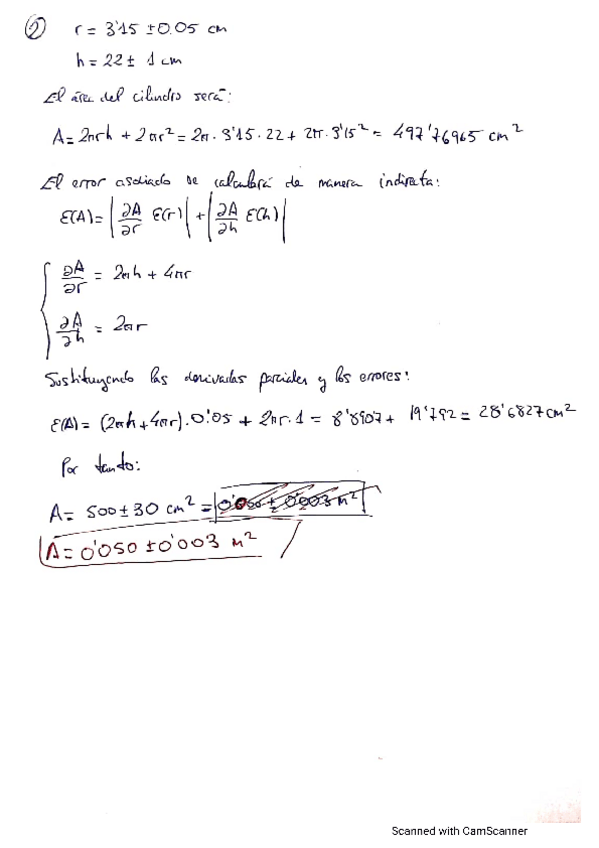 ② r = 3'15 ± 0.05 cm
h = 22 ± 1 cm
El área del cilindro será:
A = 2πrh + 2πr² = 2π · 3'15 · 22 + 2π · 3'15² = 497'76965 cm²
El error asociado se calculará de manera indirecta:
ε(A) = |∂A/∂r ε(r)| + |∂A/∂h ε(h)|
∂A/∂r = 2πh + 4πr
∂A/∂h = 2πr
Sustituyendo las derivadas parciales y los errores:
ε(A) = (2πh + 4πr) · 0'05 + 2πr · 1 = 8'8907 + 19'792 = 28'6827 cm²
Por tanto:
A = 500 ± 30 cm² = 0'050 ± 0'003 m²
A = 0'050 ± 0'003 m²
Scanned with CamScanner